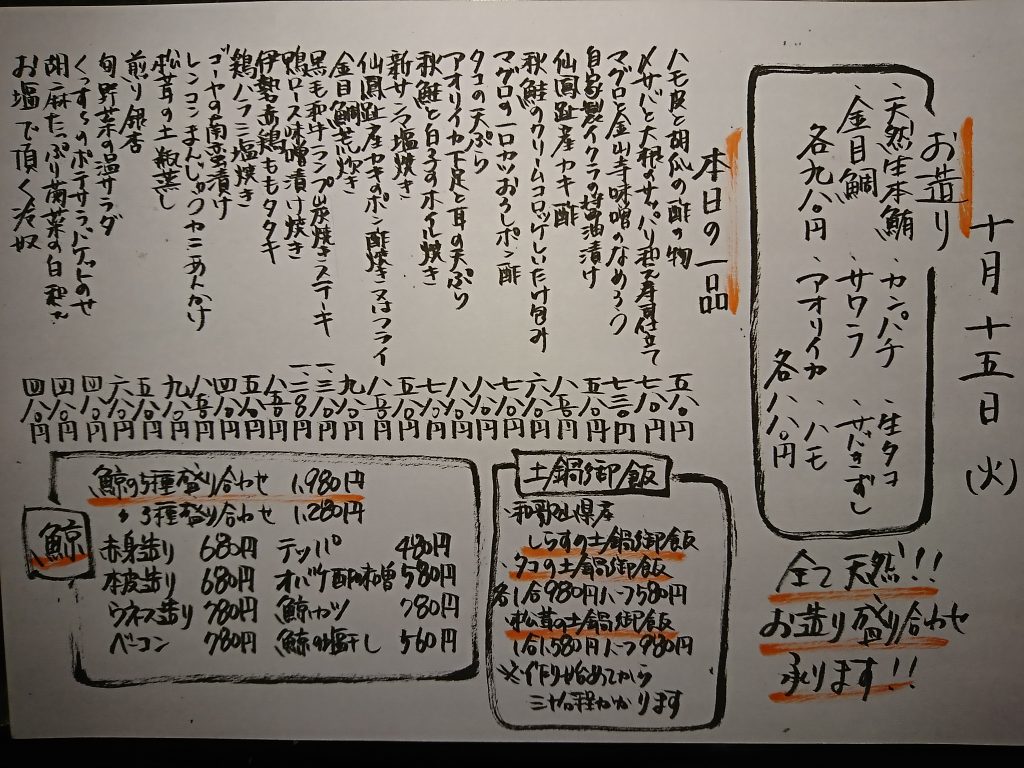 十月十五日(火)
お造り
・天然生本鮪 ・カンパチ ・生タコ
・金目鯛 ・サワラ ・サバきずし
各九八〇円 ・アオリイカ ・ハモ
各八八〇円
全て天然!!
お造り盛り合わせ
承ります!!
本日の一品
ハモ皮と胡瓜の酢の物 五八〇円
〆サバと大根のサッパリ和え寿司仕立て 七八〇円
マグロと金山寺味噌のなめろう 七三〇円
自家製イクラの醤油漬け 五八〇円
仙鳳趾産カキ酢 八五〇円
秋鮭のクリームコロッケしいたけ包み 六八〇円
マグロの一口カツおろしポン酢 七八〇円
タコの天ぷら 八八〇円
アオリイカ下足と耳の天ぷら 八八〇円
秋鮭と白子すホイル焼き 七八〇円
新サンマ塩焼き 五八〇円
仙鳳趾産カキのポン酢焼き又はフライ 八五〇円
金目鯛荒炊き 九八〇円
黒毛和牛ランプ炭焼きステーキ 一、三八〇円
鴨ロース味噌漬け焼き 一、二八〇円
伊勢赤鶏ももタタキ 八五〇円
鶏ハラミ塩焼き 五八〇円
ゴーヤの南蛮漬け 四八〇円
レンコンまんじゅうカニあんかけ 八五〇円
松茸の土瓶蒸し 九八〇円
煎り銀杏 五八〇円
旬野菜の温サラダ 六八〇円
くっすらのポテサラバゲットのせ 四八〇円
胡麻たっぷり菊菜の白和え 四八〇円
お塩で頂く冷奴 四八〇円
土鍋御飯
・和歌山県産
しらすの土鍋御飯
・タコの土鍋御飯
各1合980円ハーフ580円
・松茸の土鍋御飯
1合1,580円ハーフ980円
※作り始めてから
三十分程かかります
鯨
鯨の5種盛り合わせ 1,980円
〃 3種盛り合わせ 1,280円
赤身造り 680円 テッパ 480円
本皮造り 680円 オバケ酢味噌 580円
ウネス造り 780円 鯨カツ 780円
ベーコン 780円 鯨の塩干し 560円